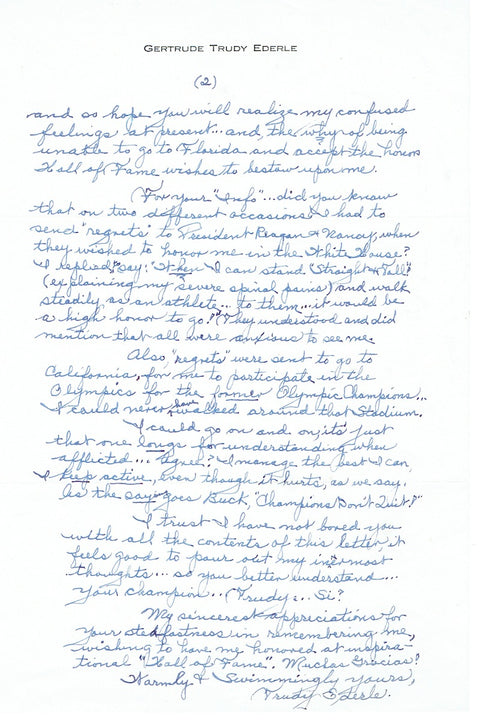 GERTRUDE TRUDY EDERLE
(2)
and so hope you will realize my confused
feelings at present... and, the why? of being
unable to go to Florida and accept the honors
Hall of Fame wishes to bestow upon me.
(For your "Info"... did you know
that on two different occasions I had to
send 'regrets' to President Reagan & Nancy, when
they wished to honor me in the White House?
I replied, "say: "When I can stand 'Straight & Tall'
(explaining my severe spinal pains) and walk
steadily, as an athlete... to them... it would be
a high honor to go! (They understood and did
mention that all were anxious to see me.
Also, "regrets" were sent to go to
California, for me to participate in the
Olympics for the former Olympic Champions...
I could never have walked around that Stadium.
I could go on and on, its just
that one longs for understanding when
afflicted... Agree? I manage the best I can,
I keep active, even though it hurts, as we say.
As the saying goes Buck, "Champions Don't Quit!"
I trust I have not bored you
with all the contents of this letter, it
feels good to pour out my innermost
thoughts... so you better understand...
your champion... (Trudy:.. Si?
My sincerest appreciations for
your stedfastness in remembering me,
wishing to have me honored at inspira-
tional "Hall of Fame". Muchas Gracias!
Warmly & Swimmingly yours,
Trudy Ederle.